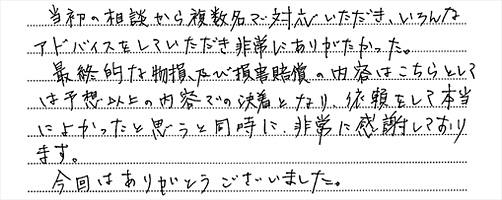 当初の相談から複数名で対応いただき、いろんな
アドバイスをしていただき非常にありがたかった。
最終的な物損、及び損害賠償の内容はこちらとして
は予想以上の内容での決着となり、依頼をして本当
によかったと思うと同時に、非常に感謝しており
ます。
今回はありがとうございました。